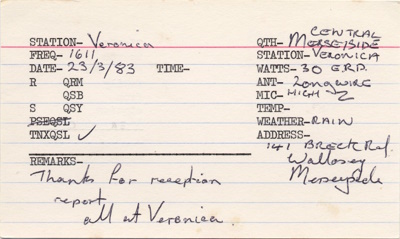 STATION- Veronica
FREQ- 1611
DATE- 23/3/83 TIME-
R QRM
QSB
S QSY
PSEQSL
TNXQSL ✓
REMARKS-
Thanks for reception
report
all at Veronica.
QTH- CENTRAL
MERSEYSIDE
STATION- VERONICA
WATTS- 30 ERP
ANT- Longwire
MIC- HIGH Z
TEMP-
WEATHER- RAIN
ADDRESS-
141 BRECK Rd.
Wallasey
Merseyside